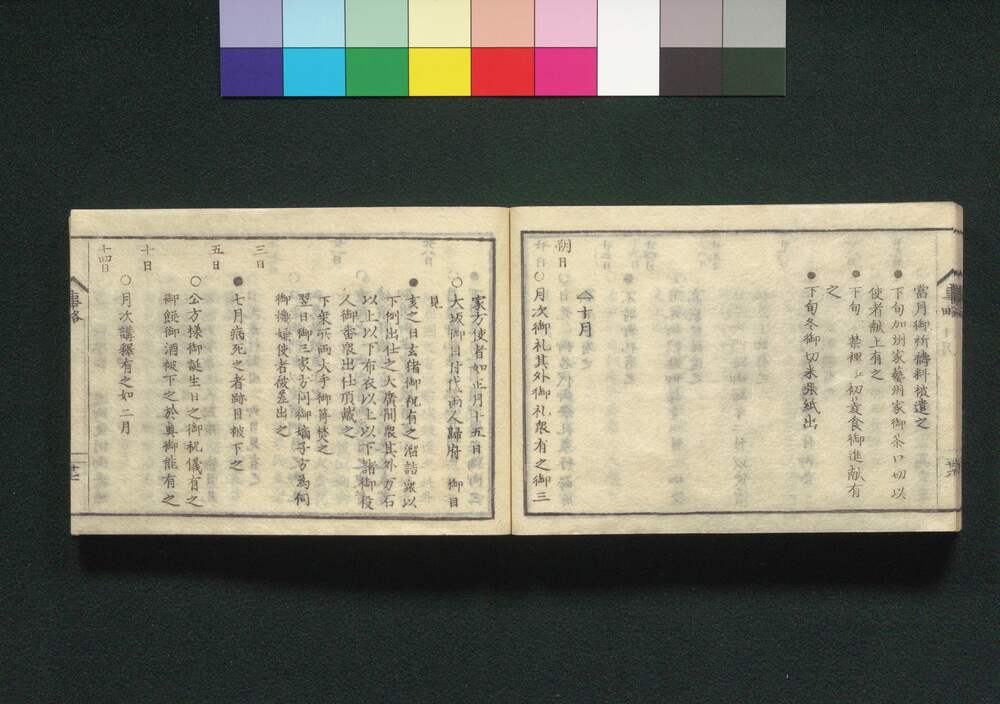 當月御祈禱料被遣之
● 下旬加州家藝州家御茶口切以
使者献上有之
● 下旬 禁裡ゟ初菱食御進献有
之
● 下旬冬御切米張紙出
今十月
朔日
○月次御礼其外御礼衆有之御三
家方使者如正月十五日
○大坂御目付代両人歸府 御目
見
● 亥之日玄猪御祝有之溜詰衆以
下例出仕之大廣間衆其外万石
以上以下布衣以上以下諸御役
人御番衆出仕頂戴之
下乗所両大手御篝焚之
翌日御三家方同御嫡子方為伺
御機嫌使者被差出之
三日
● 七月病死之者跡目被下之
五日
○公方様御誕生日之御祝儀有之
御餅御酒被下之於奥御能有之
十日
○月次講釋有之如二月
十四日
事略